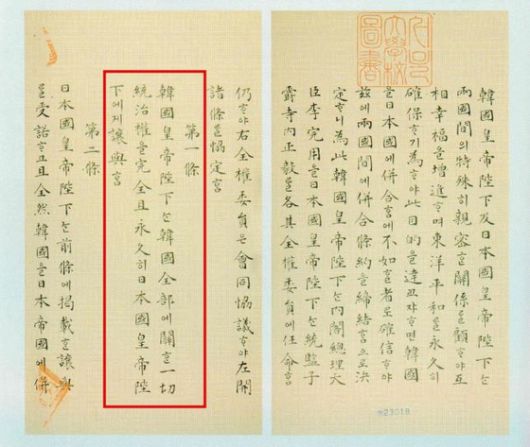 韓國皇帝陛下及日本國皇帝陛下는
兩國間의特殊히親密ᄒᆞᆫ關係를顧ᄒᆞ야互
相幸福을增進ᄒᆞ며東洋平和를永久히
確保ᄒᆞ기爲ᄒᆞ야此目的을達코쟈ᄒᆞ면韓國
을日本國에併合ᄒᆞᆷ에不如ᄒᆞᆫ者로確信ᄒᆞ야
玆에兩國間에併合條約을締結ᄒᆞᆷ으로決
定ᄒᆞ니爲此韓國皇帝陛下는內閣總理大
臣李完用을日本國皇帝陛下는統監子
爵寺內正毅를各其全權委員에任命ᄒᆞᆷ
23018
仍ᄒᆞ야右全權委員은會同協議ᄒᆞ야左開
諸條를協定ᄒᆞᆷ
第一條
韓國皇帝陛下는韓國全部에關ᄒᆞᆫ一切
統治權을完全且永久히日本國皇帝陛
下에게讓與ᄒᆞᆷ
第二條
日本國皇帝陛下는前條에揭載ᄒᆞᆫ讓與
를受諾ᄒᆞ고且全然韓國을日本帝國에併